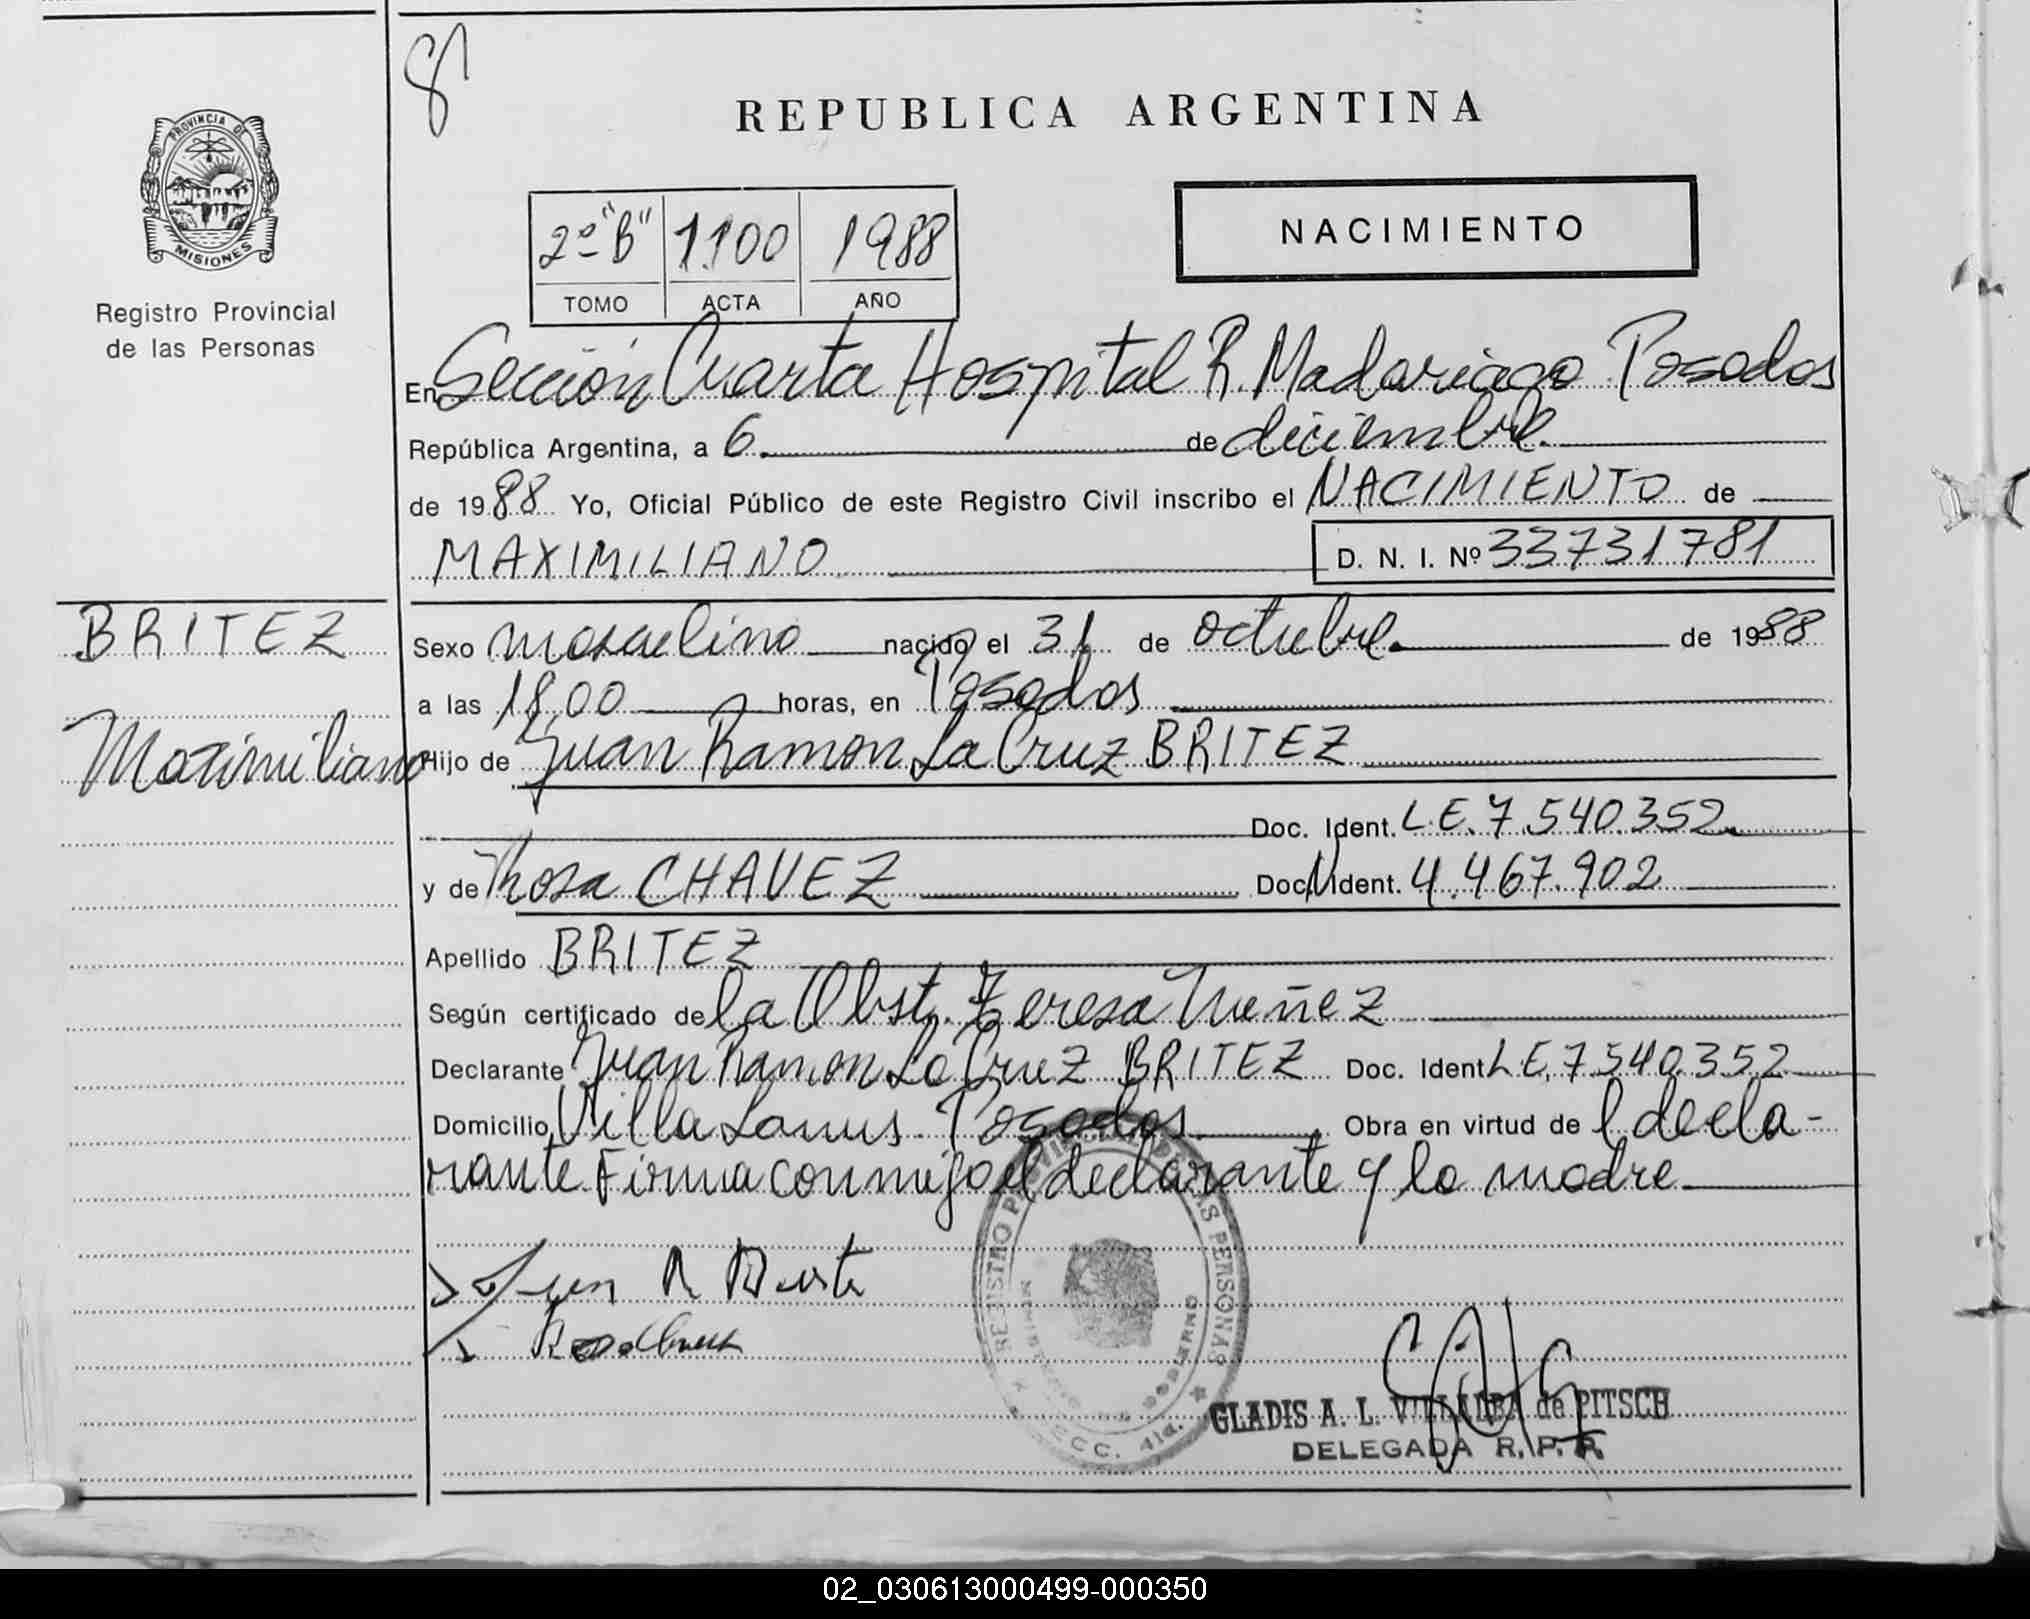 8
PROVINCIA DE
MISIONES
Registro Provincial
de las Personas
BRITEZ
Maximiliano
REPUBLICA ARGENTINA
2º "B" 1100 1988
TOMO ACTA AÑO
NACIMIENTO
En Sección Cuarta Hospital R. Madariaga Posadas
República Argentina, a 6 de diciembre
de 1988 Yo, Oficial Público de este Registro Civil inscribo el NACIMIENTO de
MAXIMILIANO D. N. I. Nº 33731781
Sexo masculino nacido el 31 de octubre de 1988
a las 18,00 horas, en Posadas
Hijo de Juan Ramon La Cruz BRITEZ
Doc. Ident. L.E. 7.540.352
y de Rosa CHAVEZ Doc. Ident. 4.467.902
Apellido BRITEZ
Según certificado de la Obst. Teresa Nuñez
Declarante Juan Ramon La Cruz BRITEZ Doc. Ident L.E. 7540352
Domicilio Villa Lanus Posadas Obra en virtud de l decla-
rante Firma conmigo el declarante y la madre
REGISTRO PROVINCIAL DE LAS PERSONAS
GOBIERNO
SECC. 4ta.
GLADIS A. L. VILLALBA de PITSCH
DELEGADA R. P. P.
02_030613000499-000350